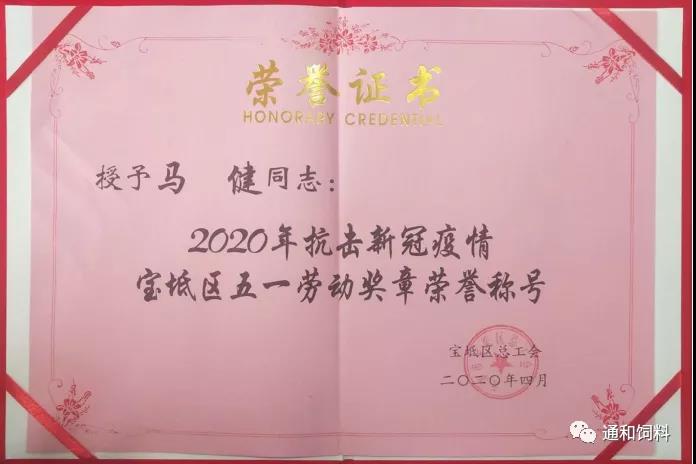 荣誉证书
HONORARY CREDENTIAL
授予马 健同志：
2020年抗击新冠疫情
宝坻区五一劳动奖章荣誉称号
宝坻区总工会
二〇二〇年四月
通和饲料